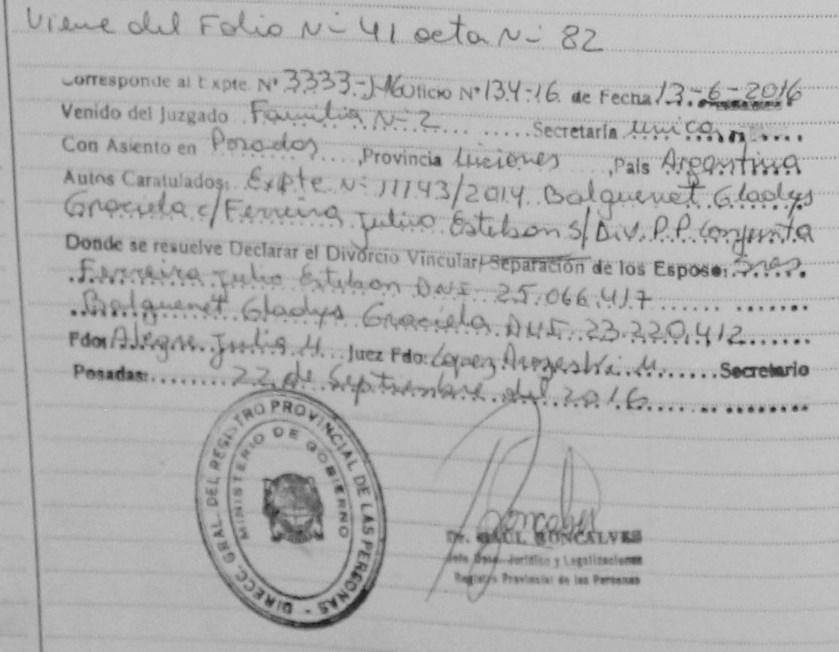 Viene del Folio N- 41 acta N- 82
Corresponde al Expte. Nº 3333-J-16 Oficio Nº 134-16. de Fecha 13-6-2016
Venido del Juzgado Familia N-2 Secretaría unica
Con Asiento en Posadas, Provincia Misiones, País Argentina
Autos Caratulados: Expte N- 11143/2014 Balguenet Gladys
Graciela c/ Ferreira Julio Esteban S/ Div. P.P. Conjunta
Donde se resuelve Declarar el Divorcio Vincular/ Separación de los Esposos: Sres.
Ferreira Julio Esteban DNI 25.066.417
Balguenet Gladys Graciela DNI 23.220.412
Fdo: Alegre Julia M. Juez Fdo: Lopez M. Secretario
Posadas: 22 de Septiembre del 2016
DIRECC. GRAL. DEL REGISTRO PROVINCIAL DE LAS PERSONAS -
MINISTERIO DE GOBIERNO
Goncalves
Dr. RAUL GONCALVES
Jefe Dpto. Jurídico y Legalizaciones
Registro Provincial de las Personas